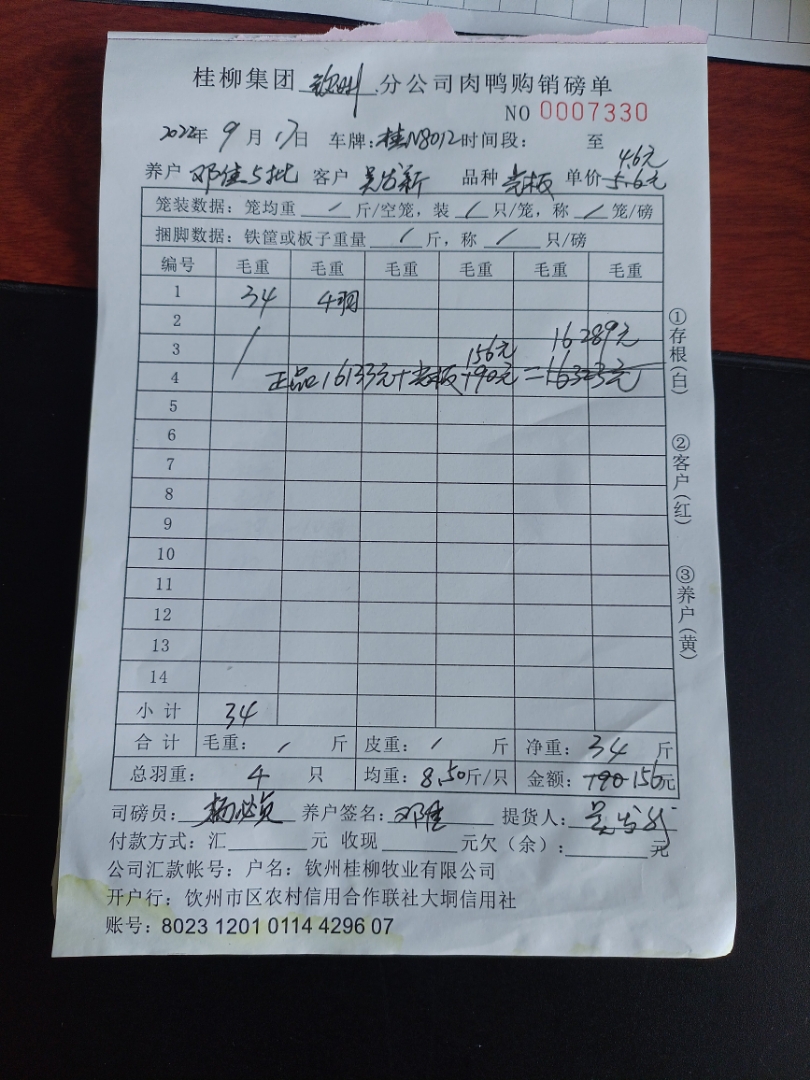 桂柳集团 钦州 分公司肉鸭购销磅单
NO 0007330
2022年 9 月 17日 车牌:桂N8012 时间段: 至
4.6元
养户 邓佳5批 客户 吴发新 品种 光板 单价 5.6元
笼装数据: 笼均重 / 斤/空笼, 装 / 只/笼, 称 / 笼/磅
捆脚数据: 铁筐或板子重量 / 斤, 称 / 只/磅
编号 毛重 毛重 毛重 毛重 毛重 毛重
1 34 4羽
2
16289元
3 156元
4 正品16133元+光板190元=16323元
5
6
7
8
9
10
11
12
13
14
小 计 34
合 计 毛重: / 斤 皮重: / 斤 净重: 34 斤
总羽重: 4 只 均重: 8.50斤/只 金额: 190 156元
司磅员: 养户签名: 邓佳 提货人: 吴发新
付款方式: 汇 元 收现 元欠(余): 元
公司汇款帐号: 户名: 钦州桂柳牧业有限公司
开户行: 钦州市区农村信用合作联社大垌信用社
账号: 8023 1201 0114 4296 07
①存根(白)
②客户(红)
③养户(黄)